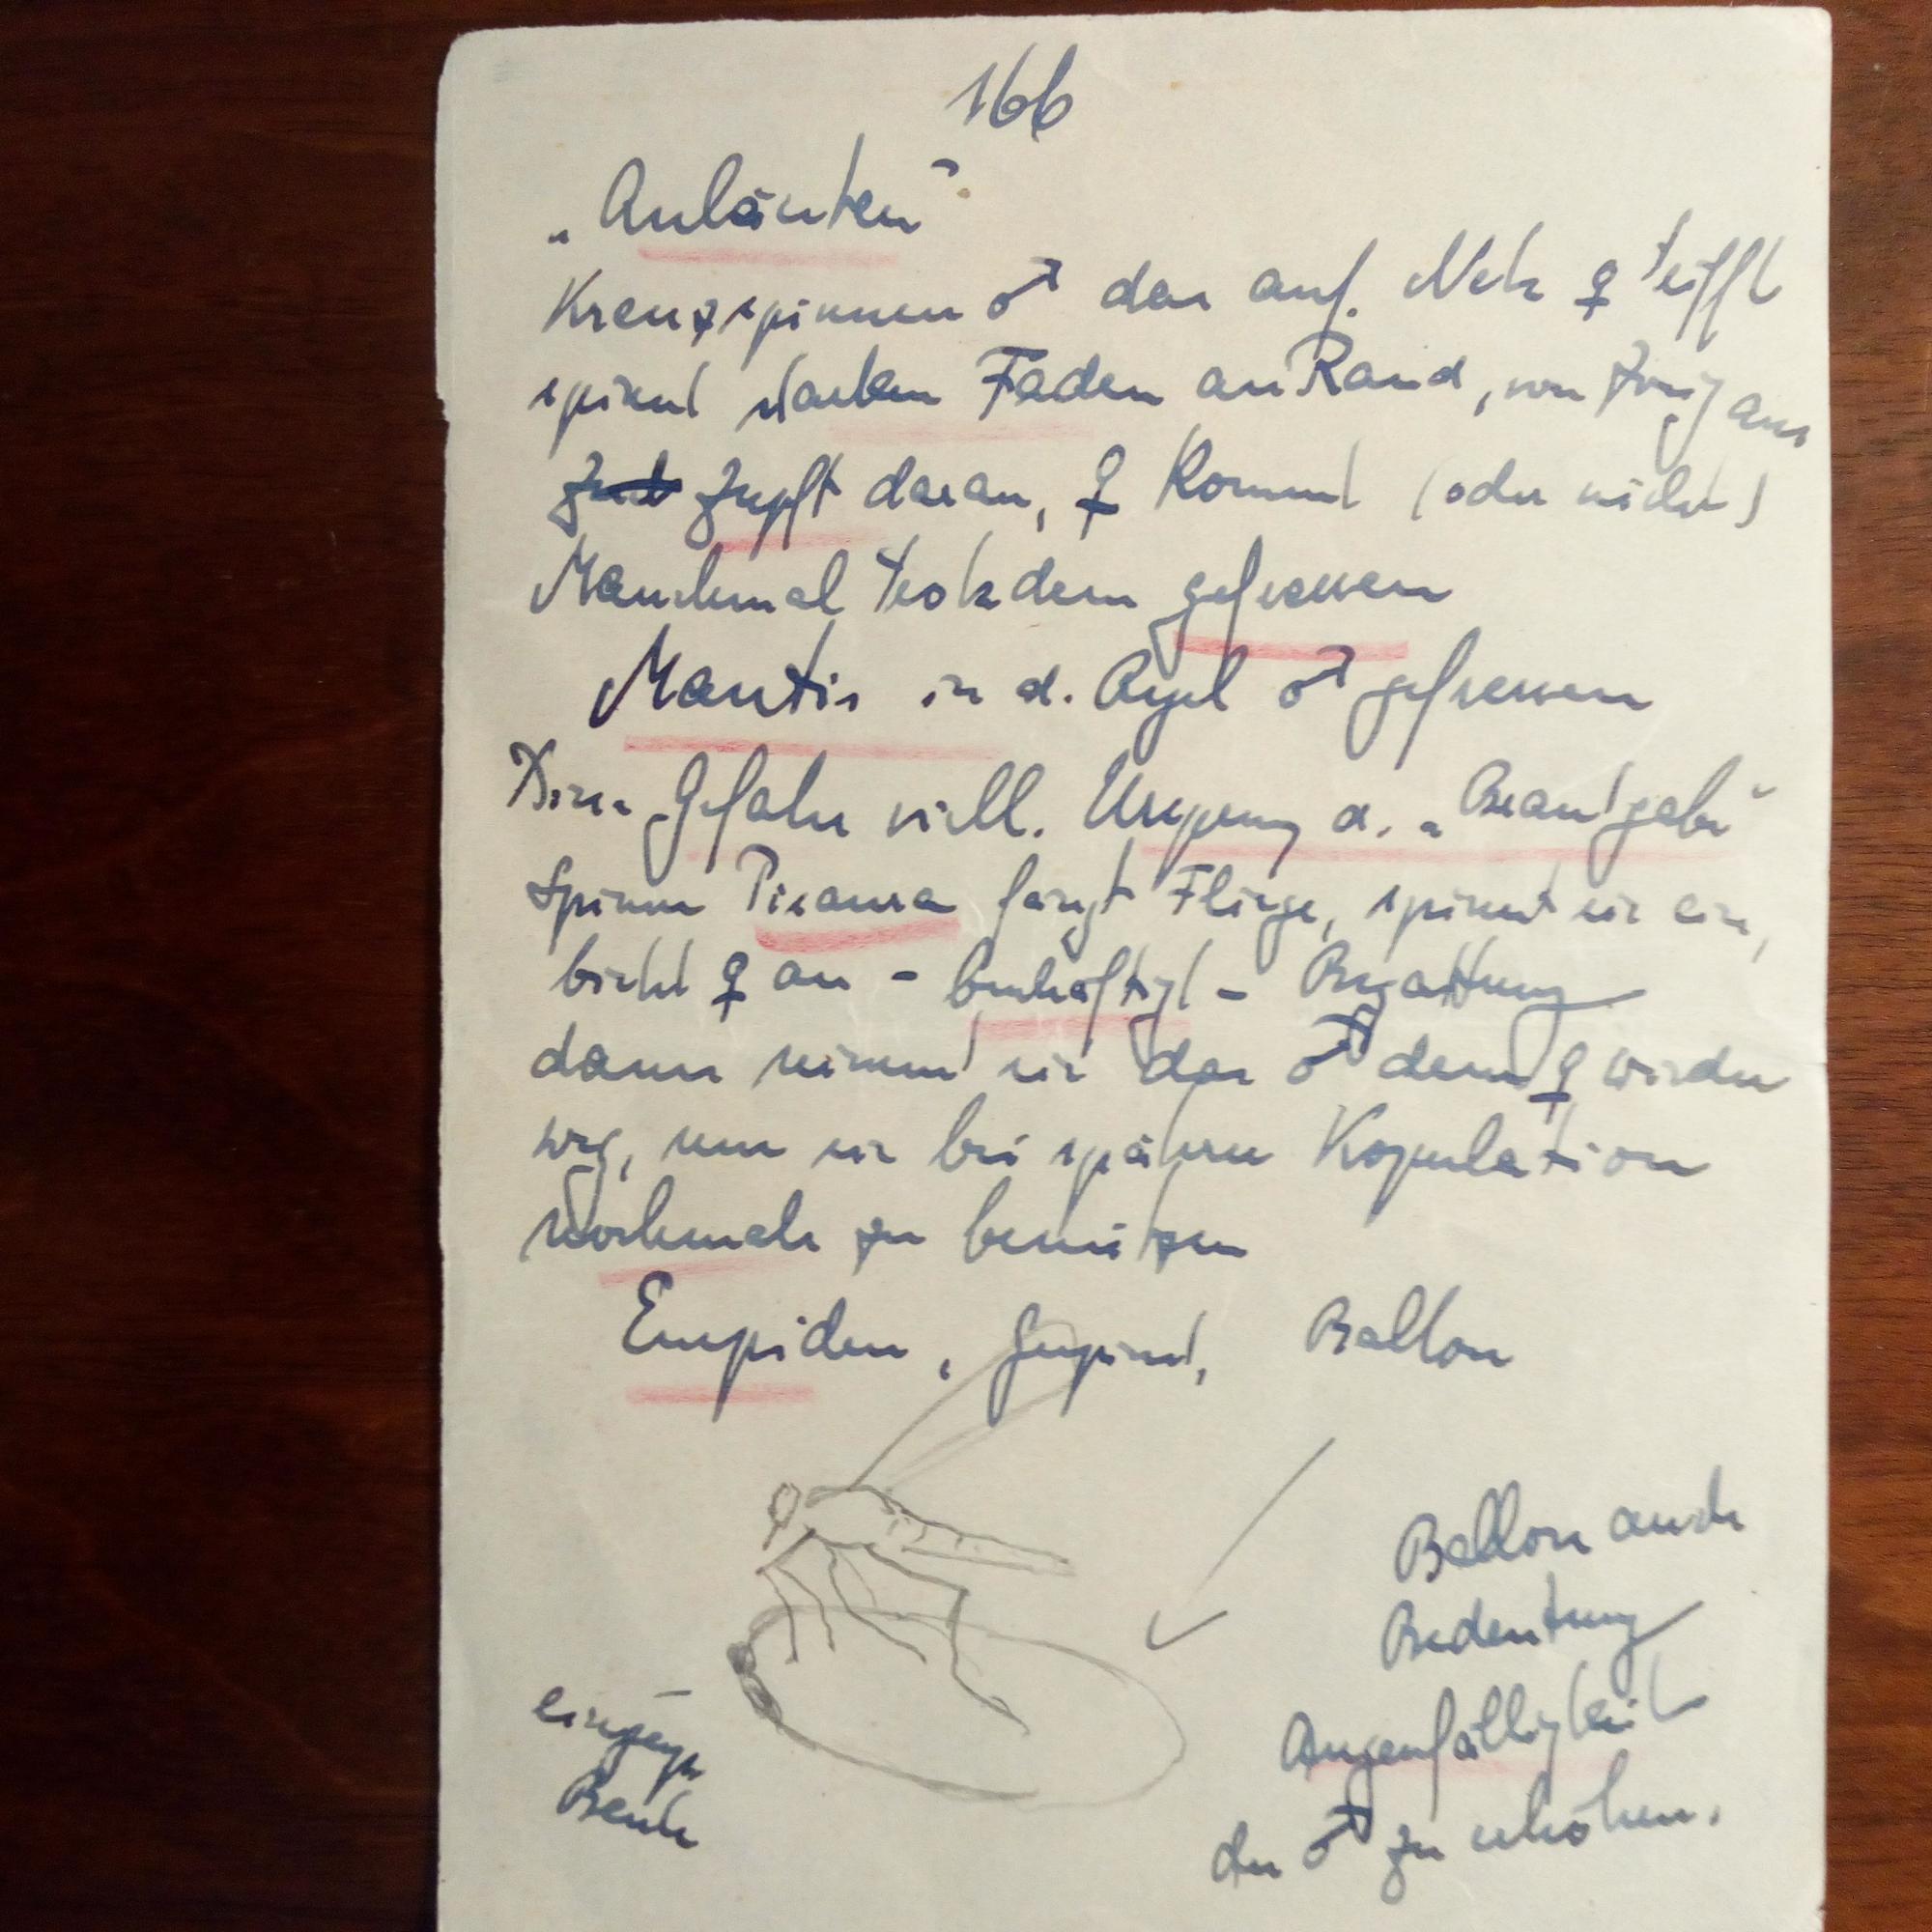 166
„Anläuten"
Kreuzspinnen ♂ das auf. Netz ♀ trifft
spinnt starken Faden an Rand, von Zweig aus
zupft daran, ♀ kommt (oder nicht)
Manchmal trotzdem gefressen
Mantis in d. Regel ♂ gefressen
Diese Gefahr viell. Ursprung d. „Brautgabe"
Spinne Pisaura fängt Fliege, spinnt sie ein,
bietet ♀ an - beschäftigt - Begattung
dann nimmt sie das ♂ dem ♀ wieder
weg, um sie bei späterer Kopulation
nochmals zu benützen
Empiden, Gespinst, Ballon
Ballon auch
Bedeutung
Augenfälligkeit
der ♂ zu erhöhen.
Beute